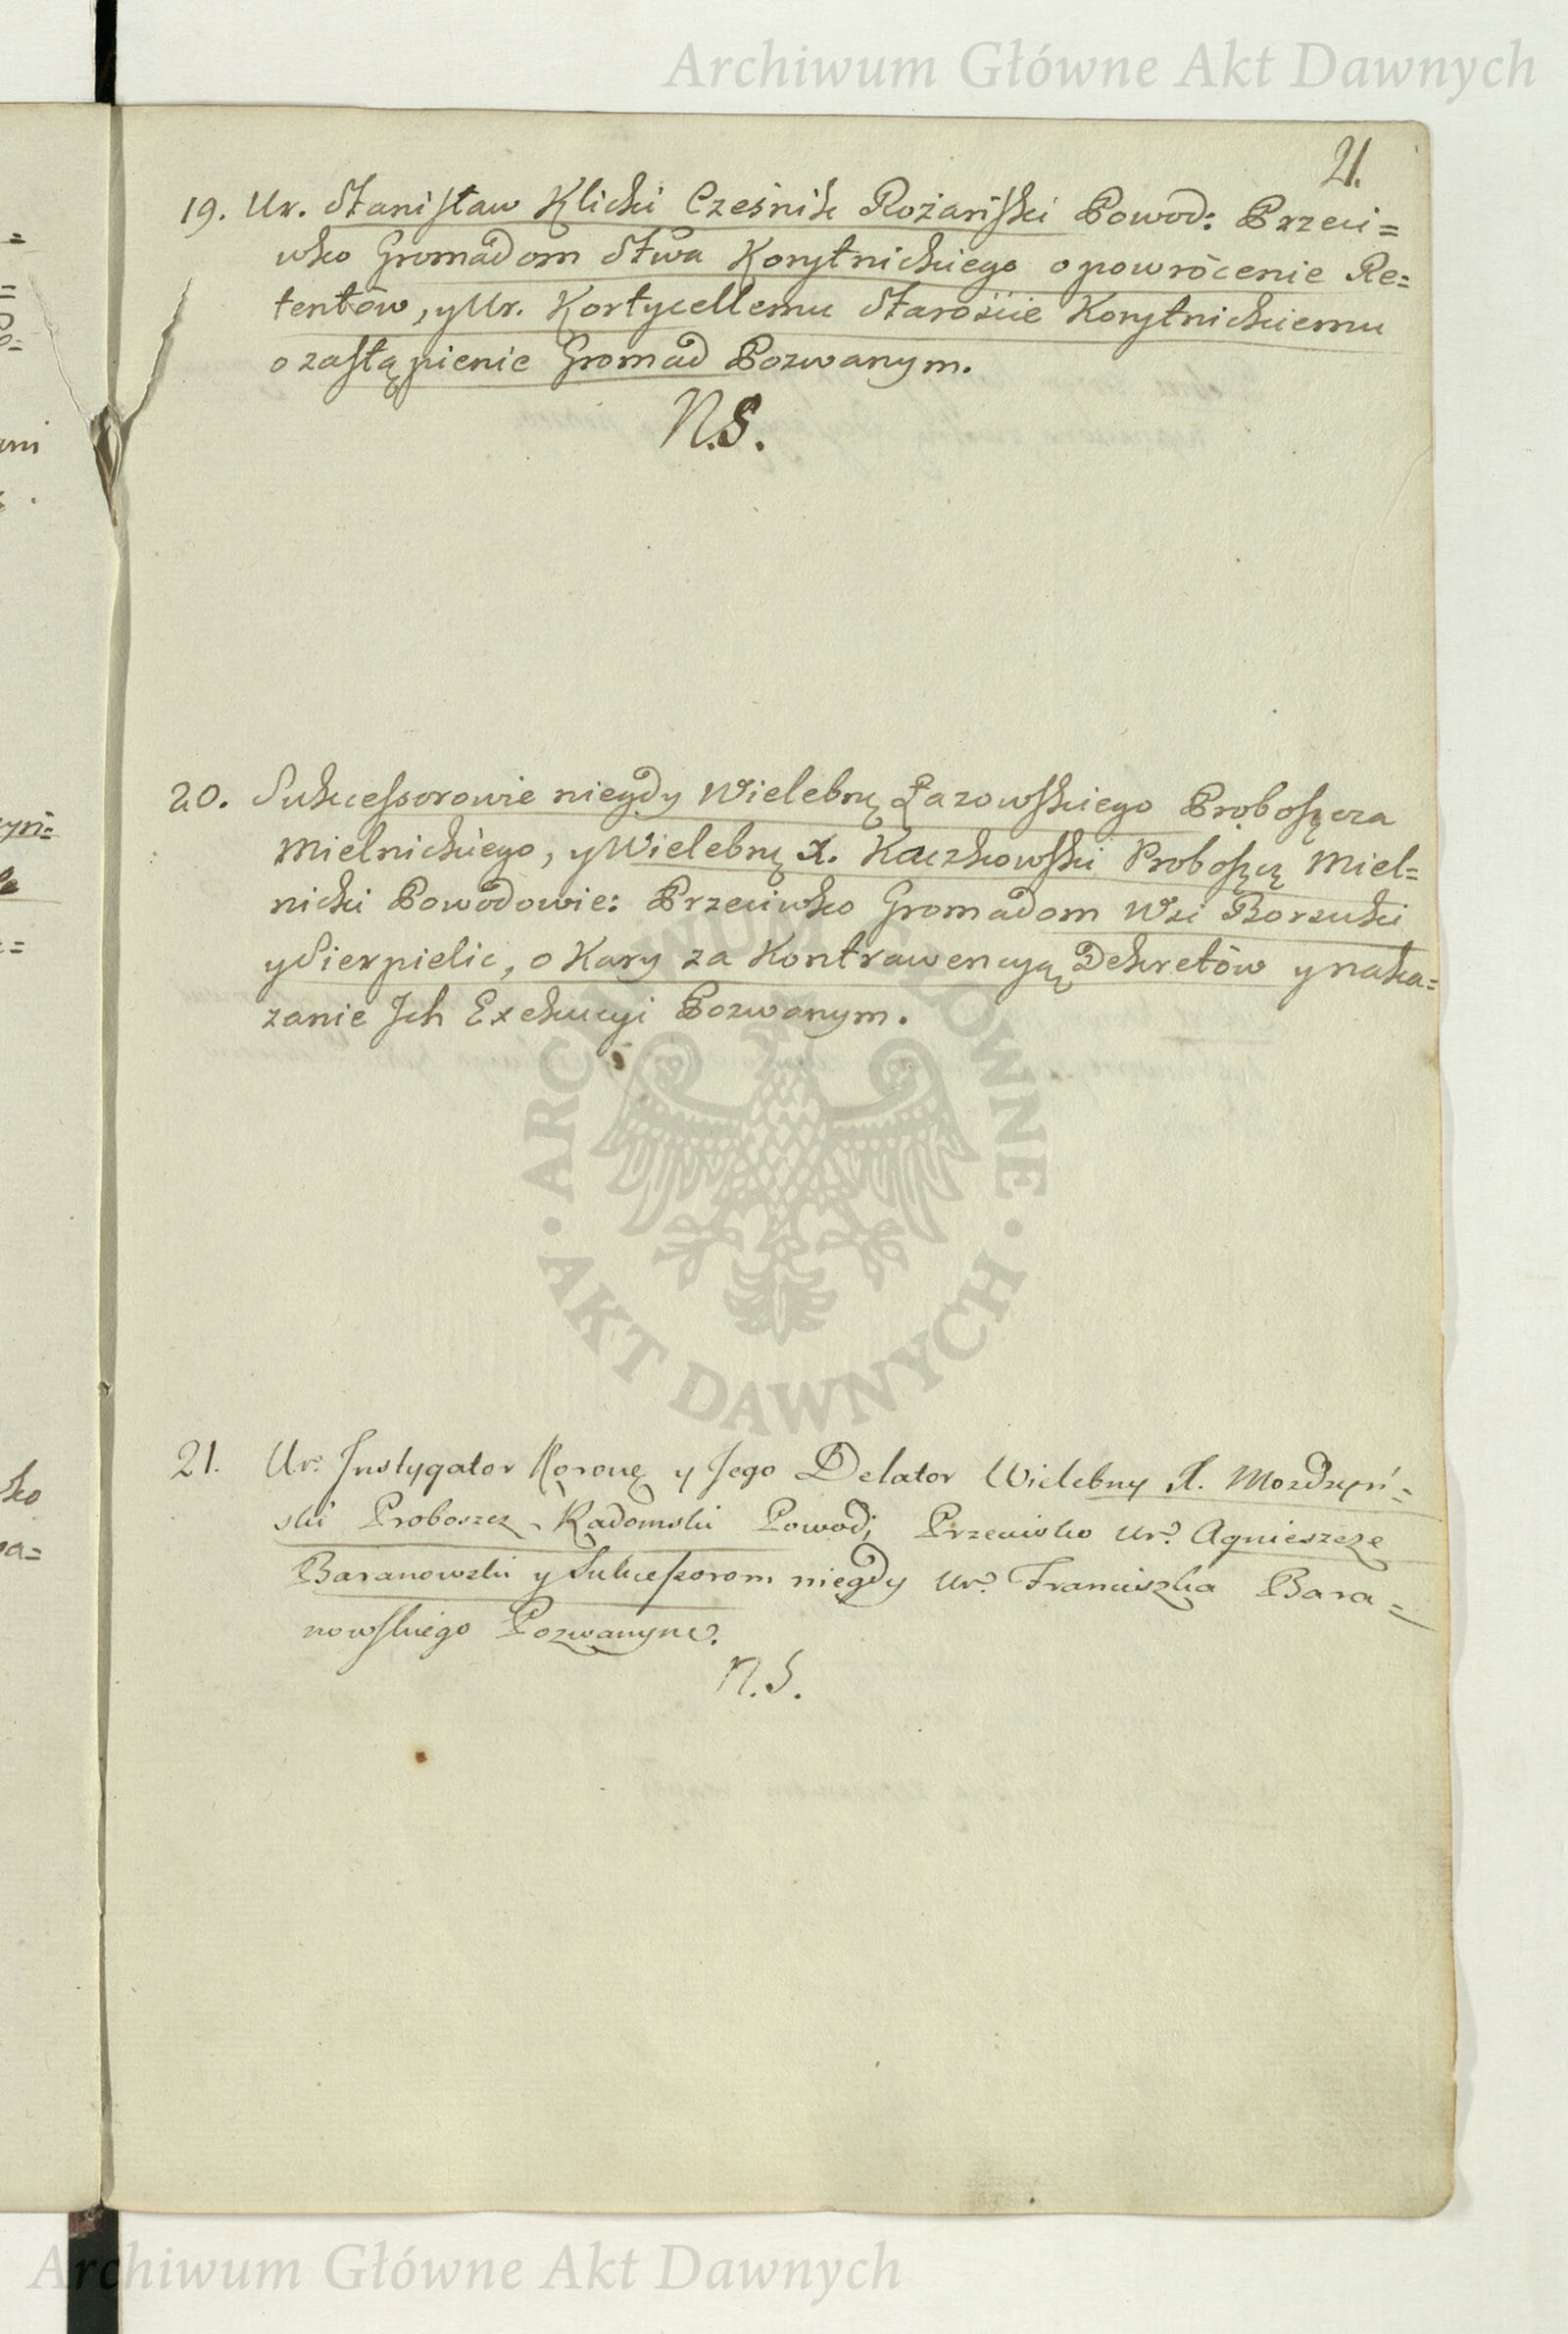 Archiwum Główne Akt Dawnych
21.
19. Ur. Stanisław Klicki Cześnik Rożański Powod: Przeci=
wko Gromadom Stwa Korytnickiego o powrócenie Re=
tentów, y Ur. Kortycellemu Starośćie Korytnickiemu
o zastąpienie Gromad Pozwanym.
N.S.
20. Sukcessorowie niegdy Wielebnę Łazowskiego Proboszcza
Mielnickiego, y Wielebnę X. Kaczkowski Proboszcz Miel=
nicki Powodowie: Przeciwko Gromadom Wsi Borsuki
y Sierpielic, o Kary za Kontrawencyą Dekretów y naka=
zanie Jch Exekucyi Pozwanym.
ARCHIWUM GŁÓWNE · AKT DAWNYCH ·
21. Ur. Instygator Koronę y Jego Delator Wielebny X. Mozdzyń=
ski Proboszcz Radomski Powod; Przeciwko Ur. Agnieszcze
Baranowski y Sukcessorom niegdy Ur. Franciszka Bara=
nowskiego Pozwanym.
N.S.
Archiwum Główne Akt Dawnych